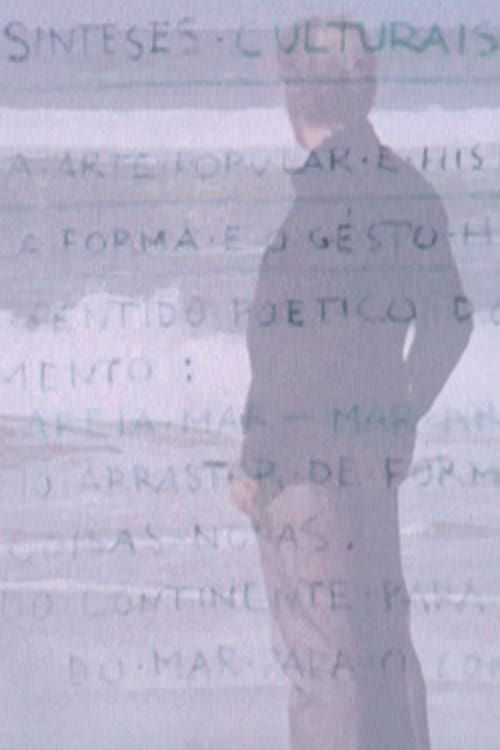 SINTESES · CULTURAIS
A · ARTE · POPULAR · E · HIS
E FORMA · E O GÉSTO · H
SENTIDO POETICO DO
MENTO :
AREIA · MAR — MAR · AR
O ARRASTAR, DE FORM
COISAS NOVAS.
DO CONTINENTE · PARA
DO · MAR · PARA O CO